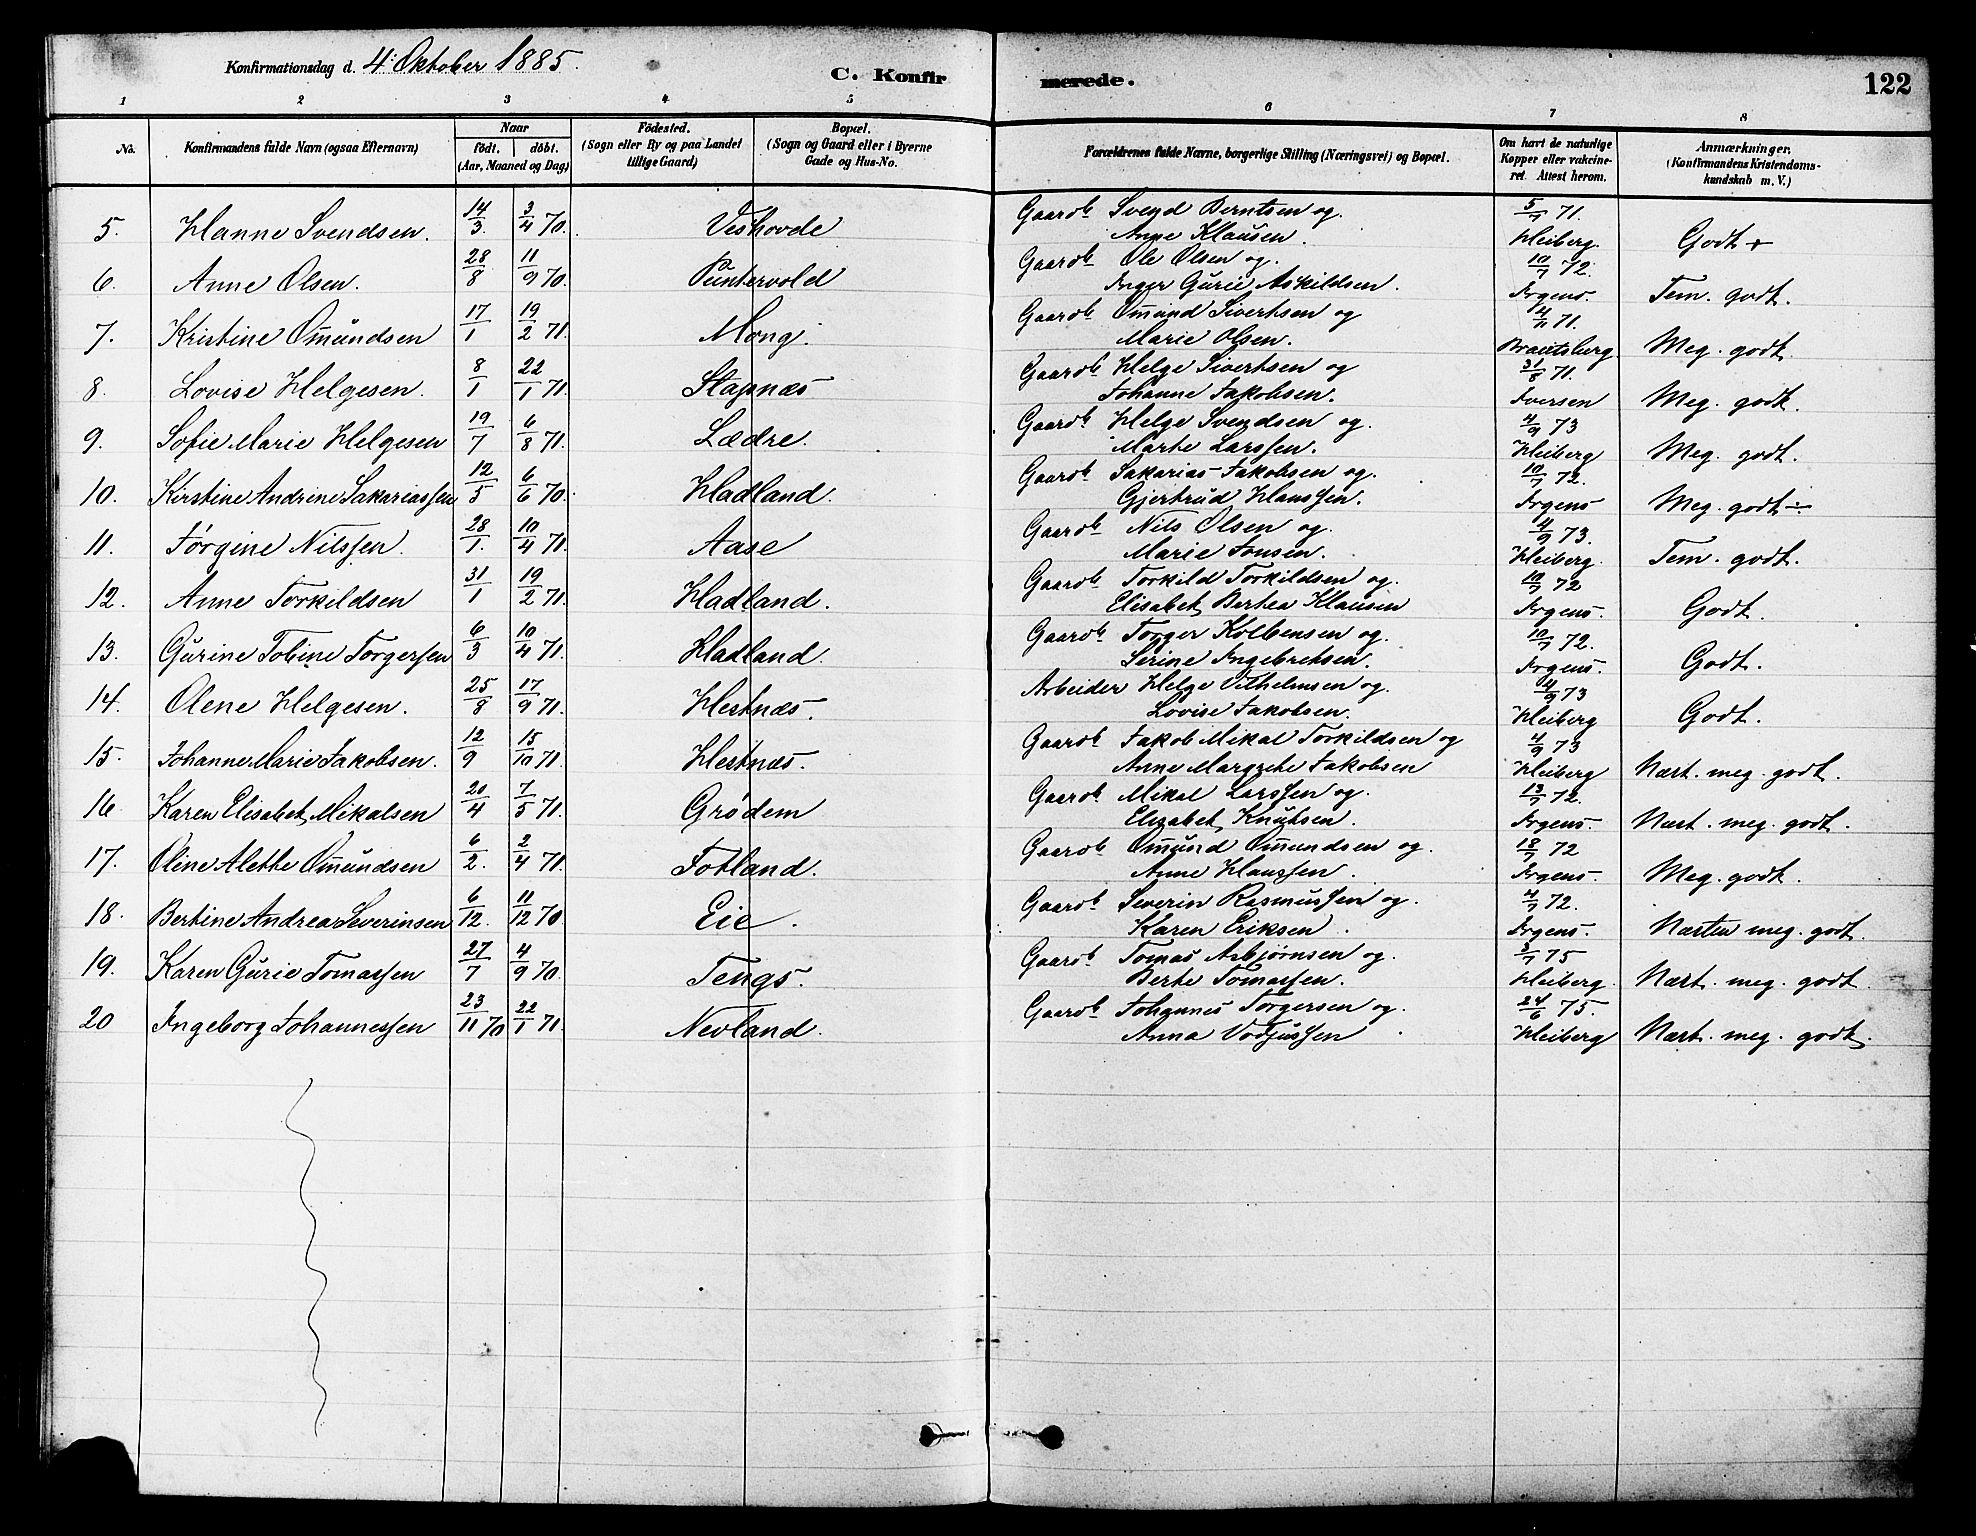 Konfirmationsdag d. 4. Oktober 1885.
C. Konfirmerede.
122
1 2 3 4 5 6 7 8
No. Konfirmandens fulde Navn (ogsaa Efternavn) Naar födt. döbt. (Aar, Maaned og Dag) Födested. (Sogn eller By og paa Landet tillige Gaard) Bopæl. (Sogn og Gaard eller i Byerne Gade og Hus-No. Forældrenes fulde Navne, borgerlige Stilling (Næringsvei) og Bopæl. Om havt de naturlige Kopper eller vakcineret. Attest herom. Anmærkninger. (Konfirmandens Kristendomskundskab m. V.)
5. Hanne Svendsen. 14/3 3/4 70. Veshovde Gaardb Svend Berntsen og 5/7 71.
Anne Klausen. Heiberg. Godt +
6. Anne Olsen. 28/8 11/9 70. Puntervold Gaardb Ole Olsen og 10/7 72.
Inger Gurie Askildsen. Irgens. Tem. godt.
7. Kristine Omundsen 17/1 19/2 71. Mong. Gaardb Omund Sivertsen og 4/11 71.
Marie Olsen. Brautsberg Meg. godt.
8. Lovise Helgesen. 8/1 22/1 71. Stapnæs Gaardb Helge Sivertsen og 31/8 71.
Johanne Jakobsen. Iversen Meg. godt.
9. Sofie Marie Helgesen 19/7 6/8 71. Lædre. Gaardb Helge Svendsen og 4/9 73
Marte Larssen. Heiberg Meg. godt.
10. Kirstine Andrine Sakariassen 12/5 6/6 70. Hadland. Gaardb Sakarias Jakobsen og 10/7 72.
Gjertrud Hanssen. Irgens Meg. godt ÷
11. Jørgine Nilssen. 28/1. 10/4 71. Aase Gaardb Nils Olsen og 4/9 73.
Marie Jonsen. Heiberg. Tem. godt.
12. Anne Torkildsen 31/1 19/2 71. Hadland. Gaardb Torkild Torkildsen og 10/7 72
Elisabet Bertea Klausen Irgens. Godt.
13. Gurine Tobine Torgersen 6/3 10/4 71. Hadland. Gaardb Torger Kolbensen og 10/7 72.
Serine Ingebretsen. Irgens. Godt.
14. Olene Helgesen. 25/8 17/9 71. Hestnæs. Arbeider Helge Vilhelmsen og 4/9 73
Lovise Jakobsen. Heiberg Godt.
15. Johanne Marie Jakobsen. 12/9 15/10 71. Hestnæs. Gaardb Jakob Mikal Torkildsen og 4/9 73
Anne Margrete Jakobsen Heiberg Næst. meg. godt.
16 Karen Elisabet Mikalsen 20/4 7/5 71. Grødem Gaardb Mikal Larssen og 13/7 72.
Elisabet Knutsen. Irgens. Næst. meg. godt.
17. Oline Alette Omundsen 6/2. 2/4 71. Fotland. Gaardb Omund Omundsen og 18/7 72
Anne Hanssen. Irgens. Meg. godt.
18. Bertine Andrea Severinsen 6/12. 11/12 70. Eie. Gaardb Severin Rasmussen og 4/7 72.
Karen Eriksen. Irgens. Næsten meg. godt.
19. Karen Gurie Tomassen 27/7 4/9 70. Tengs. Gaardb Tomas Asbjørnsen og 3/7 75
Berte Tomassen. Heiberg. Næst. meg. godt
20 Ingeborg Johannessen 23/11 70 22/1 71. Nevland. Gaardb Johannes Torgersen og 24/6 75.
Anna Heiberg Næst. meg. godt.